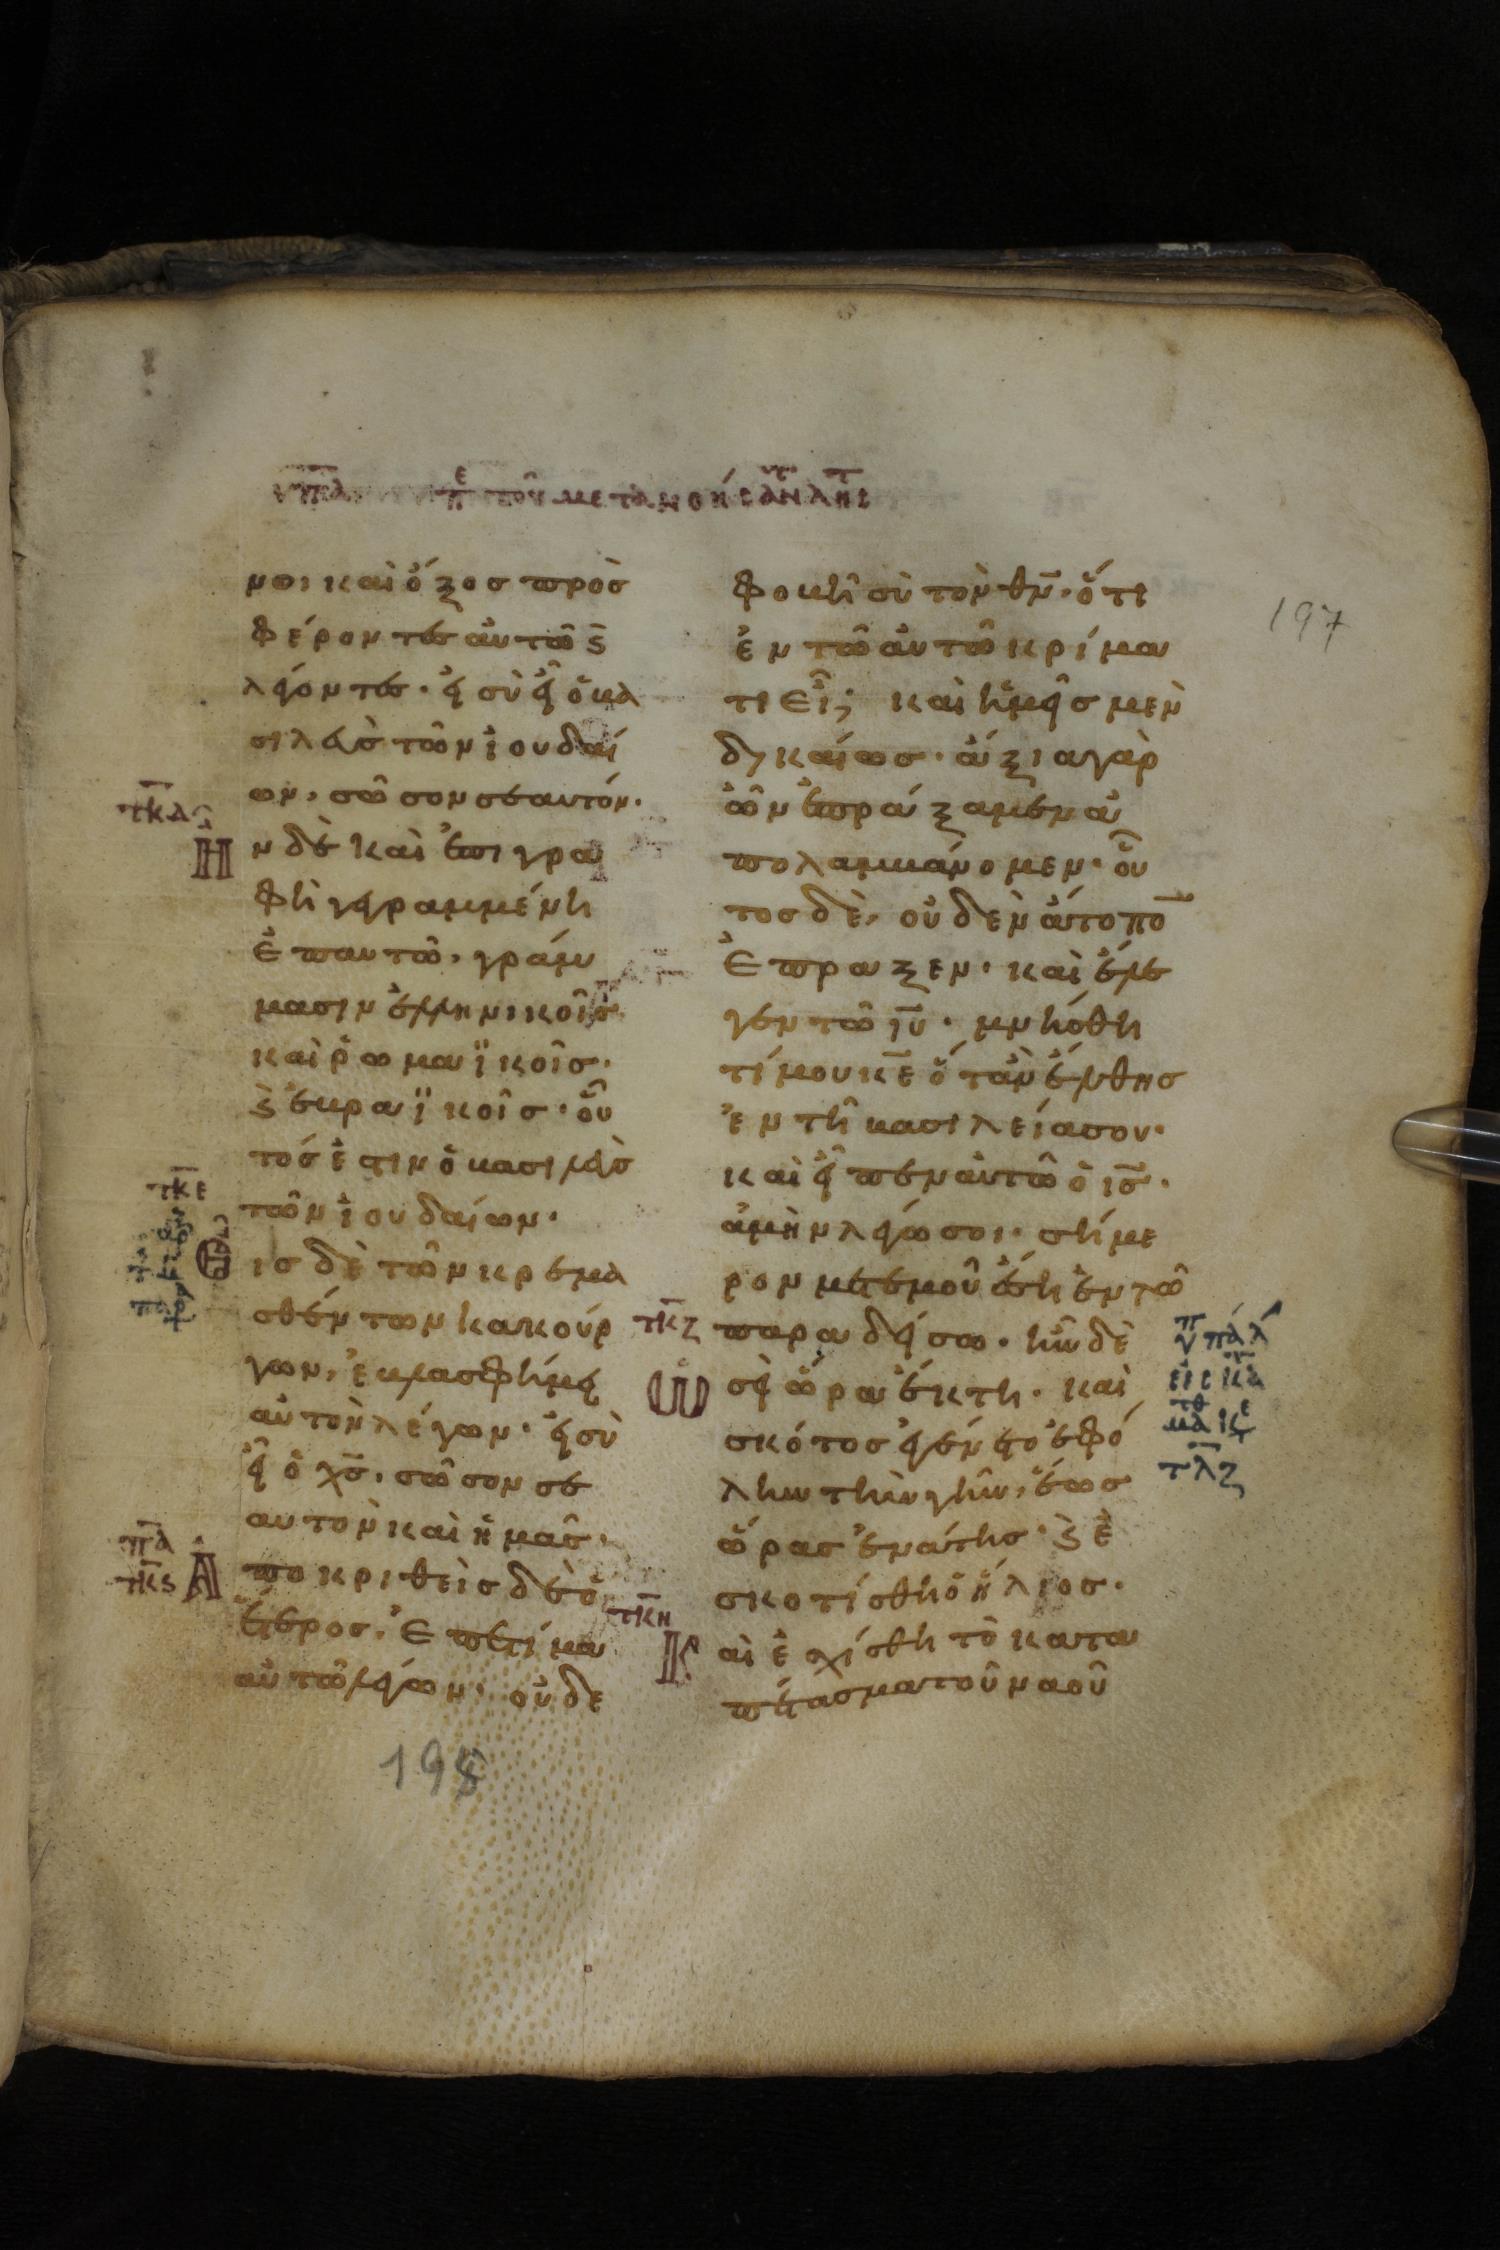 π τοῦ μετανοήσαντ λησ
197
μοι καὶ ὄξος προσ
φέροντες αὐτῶ κ̣
λέγοντες. εἰ σὺ εἶ ὁ βα
σιλεὺσ τῶν ἰουδαί
ων, σῶσον σεαυτόν.
τκδ
Ην δὲ καὶ ἐπιγρα
φὴ γεγραμμένη
ἐπαυτῶ, γράμ
μασιν ἑλληνικοῖς
καὶ ῥωμαϊκοῖσ.
κ ἑβραϊκοῖσ. οὗ
τός ἐστιν ὁ βασιλεὺσ
τῶν ἰουδαίων.
τκε
Εισ δὲ τῶν κρεμα
σθέντων κακούρ
γων, ἐβλασφήμει
αὐτὸν λέγων. εἰ σὺ
εἶ ὁ χσ, σῶσον σε
αυτὸν καὶ ἡμᾶσ.
τκς
Ἀποκριθεὶσ δὲ ὁ
ἕτερος. ἐπετίμα
αὐτῶ λέγων. οὐδε
φοβῆ σὺ τὸν θν, ὅτι
ἐν τῶ αὐτῶ κρίμα
τι εἶ; καὶ ἡμεῖσ μὲν
δικαίωσ. ἄξια γὰρ
ὧν ἐπράξαμεν ἀ
πολαμβάνομεν. οὗ
τοσ δὲ, οὐδὲν ἄτοπο
ἔπραξεν. καὶ ἔλε
γεν τῶ ιυ. μνήσθη
τί μου κε ὅταν ἔλθησ
ἐν τῆ βασιλεία σου.
καὶ εἶπεν αὐτῶ ὁ ισ.
ἀμὴν λέγω σοι. σήμε
ρον μετεμοῦ ἔση ἐν τῶ
παραδείσω. ἦν δὲ
τκζ
Ὡσεὶ ὥρα ἕκτη. καὶ
σκότοσ ἐγένετο ἐφό
λην τὴν γῆν, ἕωσ
ὥρασ ἐνάτησ. κ ἐ
σκοτίσθη ὁ ἥλιοσ.
τκη
Καὶ ἐσχίσθη τὸ κατα
πέτασμα τοῦ ναοῦ
τλζ
198